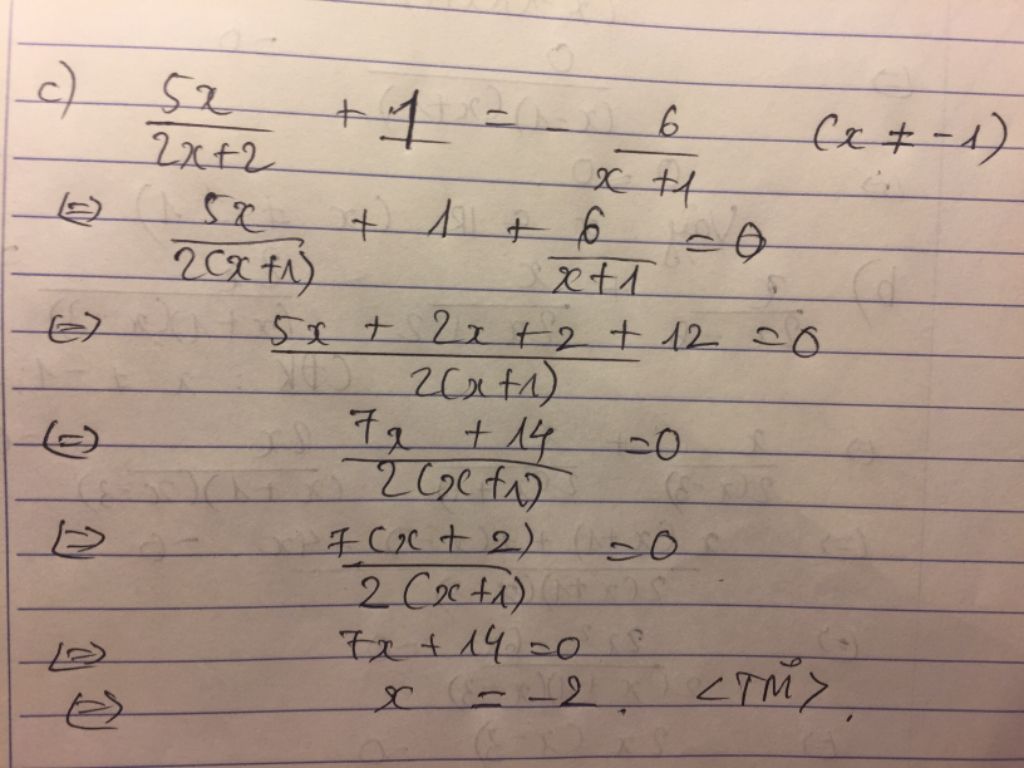 c) 5x/(2x+2) + 1 = - 6/(x+1) (x ≠ -1)
⇔ 5x/(2(x+1)) + 1 + 6/(x+1) = 0
⇔ (5x + 2x + 2 + 12)/(2(x+1)) = 0
⇔ (7x + 14)/(2(x+1)) = 0
⇔ 7(x+2)/(2(x+1)) = 0
⇔ 7x + 14 = 0
⇔ x = -2. <TM>.